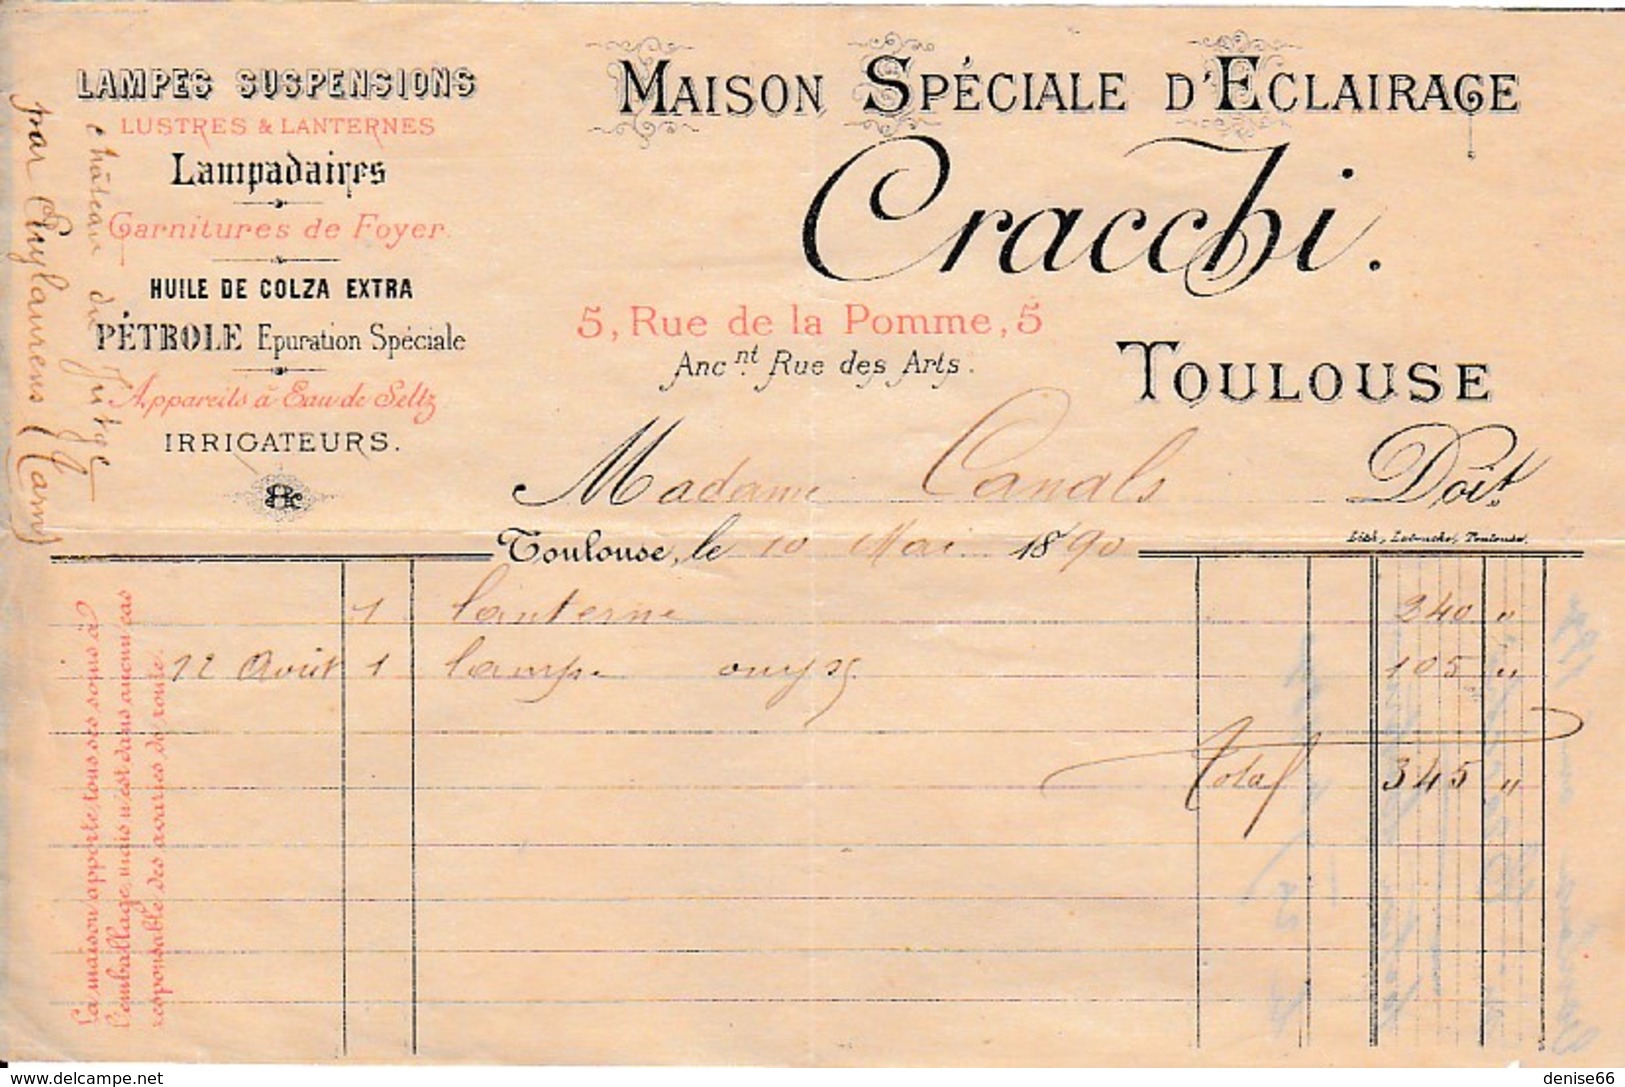 LAMPES SUSPENSIONS
LUSTRES & LANTERNES
Lampadaires
Garnitures de Foyer.
HUILE DE COLZA EXTRA
PÉTROLE Epuration Spéciale
Appareils à Eau de Seltz
IRRIGATEURS.
château du
par Puylaurens (Tarn)
MAISON SPÉCIALE D'ECLAIRAGE
Cracchi.
5, Rue de la Pomme, 5
Anc.nt Rue des Arts.
TOULOUSE
Madame Canals Doit
Toulouse, le 10 Mai 1890
Lith. Toulouse.
1 lanterne 240 "
12 Août 1 lampe onyx 105 "
Total 345 "
La maison apporte tous ses soins à
l'emballage, mais n'est dans aucun cas
responsable des avaries de route.
delcampe.net
denise66